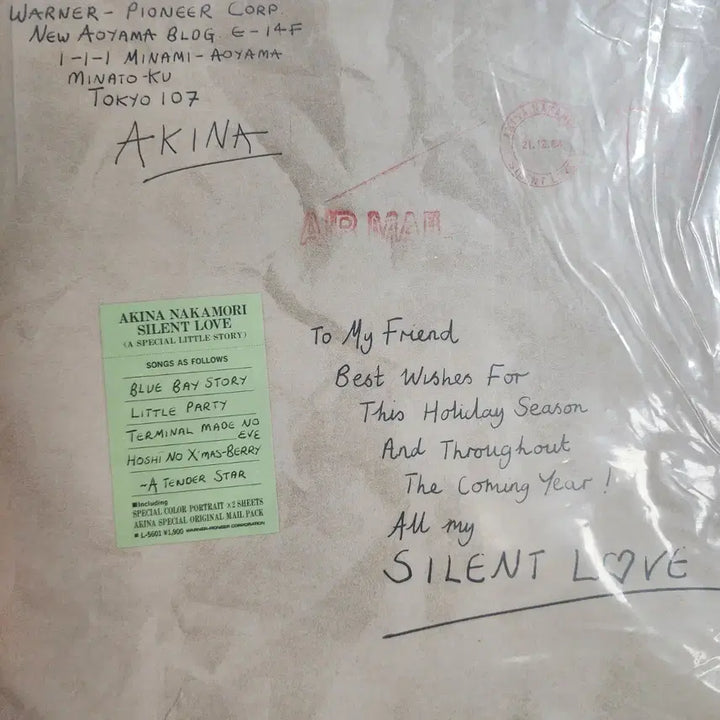 WARNER-PIONEER CORP.
NEW AOYAMA BLDG. E-14F
1-1-1 MINAMI-AOYAMA
MINATO-KU
TOKYO 107
AKINA
AKINA NAKAMORI
21.12.84
SILENT LOVE
AIR MAIL
AKINA NAKAMORI
SILENT LOVE
(A SPECIAL LITTLE STORY)
SONGS AS FOLLOWS
BLUE BAY STORY
LITTLE PARTY
TERMINAL MADE NO
EVE
HOSHI NO X'MAS-BERRY
~A TENDER STAR
■Including
SPECIAL COLOR PORTRAIT ×2 SHEETS
AKINA SPECIAL ORIGINAL MAIL PACK
■ L-5601 ¥1,900 WARNER-PIONEER CORPORATION
To My Friend
Best Wishes For
This Holiday Season
And Throughout
The Coming Year!
All my
SILENT L♡VE